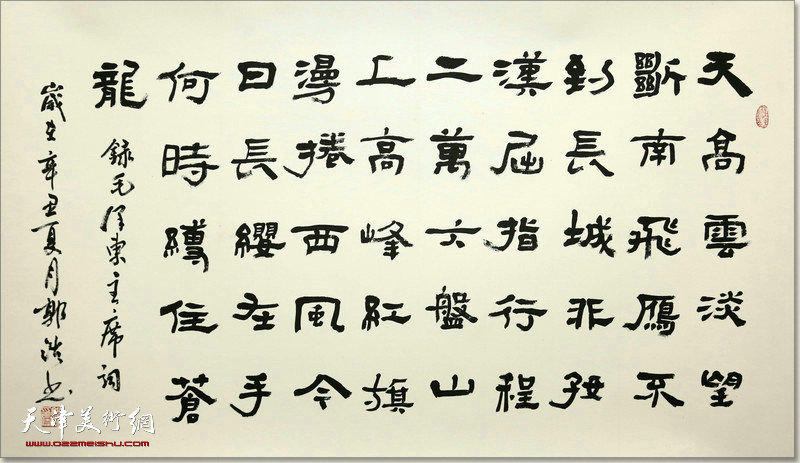 天高雲淡望
斷南飛鴈不
到長城非好
漢屈指行程
二萬六盤山
上高峰紅旗
漫捲西風今
日長纓在手
何時縛住蒼
龍
録毛澤東主席詞
歲在辛丑夏月郭浩書
天津美術網
www.022meishu.com